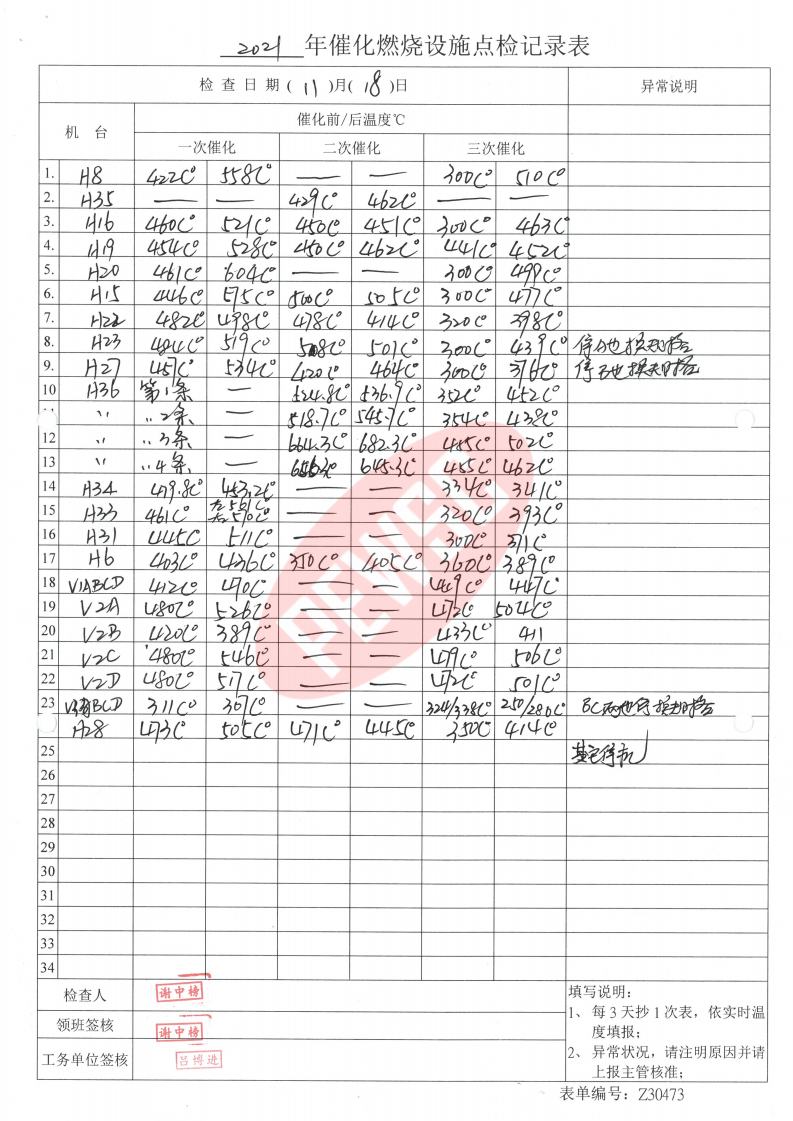 2021 年催化燃烧设施点检记录表
检查日期(11)月(18)日 异常说明
机台 催化前/后温度℃
一次催化 二次催化 三次催化
1. H8 422C° 558C° — — 300C° 510C°
2. H35 — — 429C° 462C° — —
3. H16 460C° 521C° 450C° 451C° 300C° 463C°
4. H19 454C° 528C° 450C° 462C° 441C° 452C°
5. H20 461C° 604C° — — 300C° 499C°
6. H15 446C° 575C° 500C° 505C° 300C° 477C°
7. H22 482C° 498C° 478C° 414C° 320C° 398C°
8. H23 484C° 519C° 508C° 501C° 300C° 439C°
9. H27 457C° 534C° 420C° 464C° 300C° 376C°
10 H36 第1条 — 524.8C° 536.9C° 352C° 452C°
〃 〃2条 — 518.7C° 545.7C° 354C° 438C°
12 〃 〃3条 — 664.3C° 682.3C° 485C° 502C°
13 〃 〃4条 — 645.3C° 455C° 462C°
14 H34 479.8C° 453.2C° — — 334C° 341C°
15 H33 461C° 左561C° 右570C° — — 320C° 393C°
16 H31 445C° 511C° — — 300C° 371C°
17 H6 403C° 426C° 350C° 405C° 360C° 389C°
18 V1ABCD 412C° 470C° — — 449C° 447C°
19 V2A 480C° 526C° — — 472C° 504C°
20 V2B 420C° 389C° — — 433C° 411
21 V2C 480C° 546C° — — 479C° 506C°
22 V2D 480C° 517C° — — 472C° 501C°
23 V3ABCD 311C° 307C° — — 324/338C° 250/280C°
H28 473C° 505C° 471C° 445C° 350C° 414C°
25 其它停机
26
27
28
29
30
31
32
33
34
PEWSC
检查人 谢中榜
领班签核 谢中榜
工务单位签核 吕博进
填写说明:
1、每3天抄1次表，依实时温
度填报;
2、异常状况，请注明原因并请
上报主管核准;
表单编号：Z30473